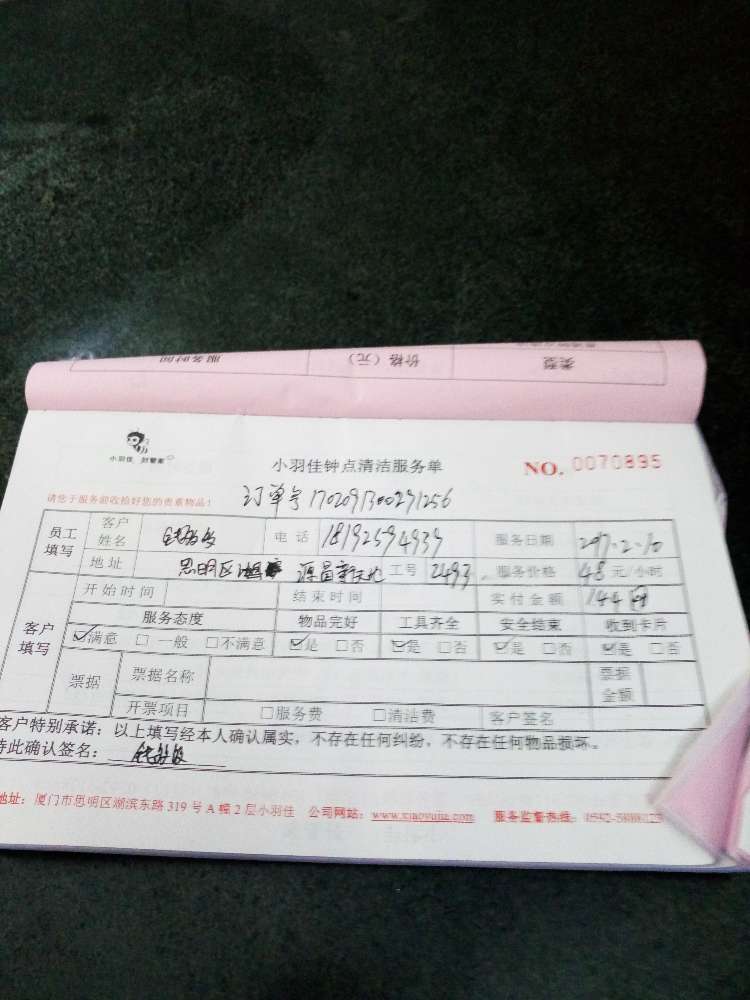 服务时间 价格（元） 类型
小羽佳 好管家
小羽佳钟点清洁服务单 NO. 0070895
请您于服务前收捡好您的贵重物品！ 订单号
员工填写 客户姓名 电话 服务日期 2017.2.10
地址 思明区 源昌 工号 2493 服务价格 48 元/小时
开始时间 结束时间 实付金额 144
客户填写 服务态度 物品完好 工具齐全 安全结束 收到卡片
☑满意 □一般 □不满意 ☑是 □否 ☑是 □否 ☑是 □否 ☑是 □否
票据 票据名称 票据金额
开票项目 □服务费 □清洁费 客户签名
客户特别承诺：以上填写经本人确认属实，不存在任何纠纷，不存在任何物品损坏。
特此确认签名：
地址：厦门市思明区湖滨东路 319 号 A 幢 2 层小羽佳 公司网站：www.xiaoyujia.com 服务监督热线：